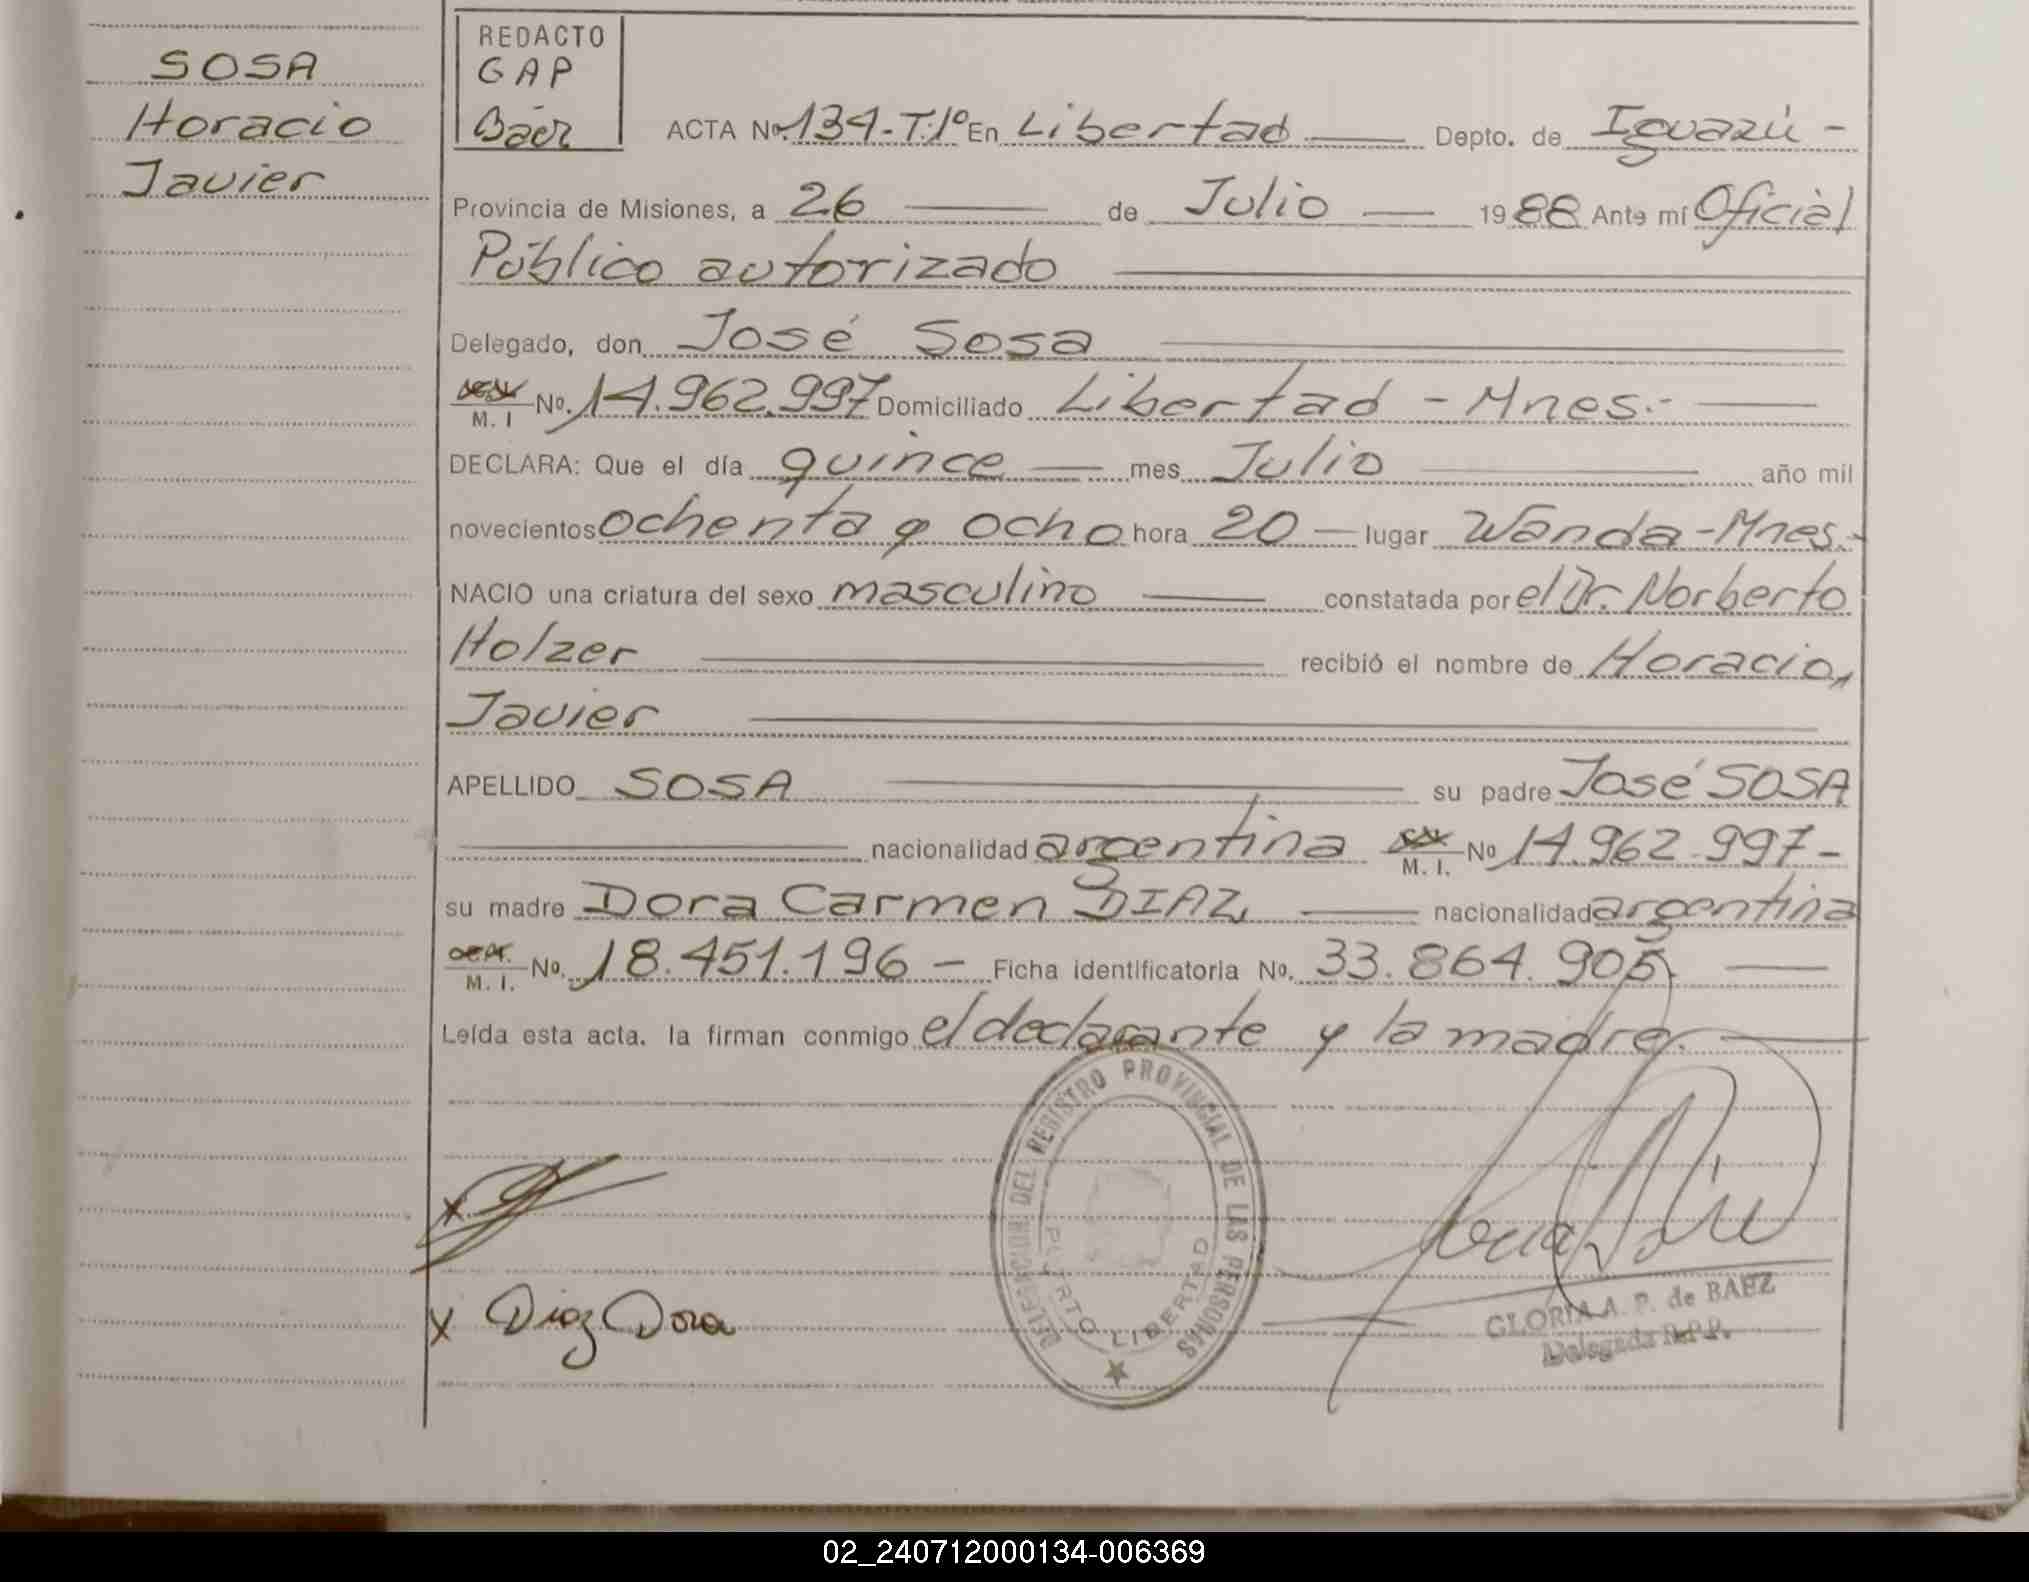 SOSA
Horacio
Javier
REDACTO
GAP
Báez
ACTA No. 134-T.1º En Libertad Depto. de Iguazú -
Provincia de Misiones, a 26 de Julio 1988 Ante mí Oficial
Público autorizado
Delegado, don José Sosa
M. I No. 14.962.997 Domiciliado Libertad - Mnes.-
DECLARA: Que el día quince mes Julio año mil
novecientos ochenta y ocho hora 20 lugar Wanda-Mnes.-
NACIO una criatura del sexo masculino constatada por el Dr. Norberto
Holzer recibió el nombre de Horacio,
Javier
APELLIDO SOSA su padre José SOSA
nacionalidad argentina M. I. No 14.962.997-
su madre Dora Carmen DIAZ, nacionalidad argentina
M. I. No. 18.451.196 - Ficha identificatoria No. 33.864.905
Leída esta acta. la firman conmigo el declarante y la madre.
x
x Diaz Dora
DELEGACION DEL REGISTRO PROVINCIAL DE LAS PERSONAS
PUERTO LIBERTAD
GLORIA A. P. de BAEZ
Delegada R.P.P.
02_240712000134-006369